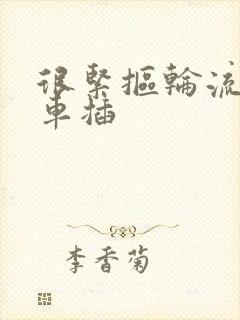 很緊摳輪流
車插
李香菊